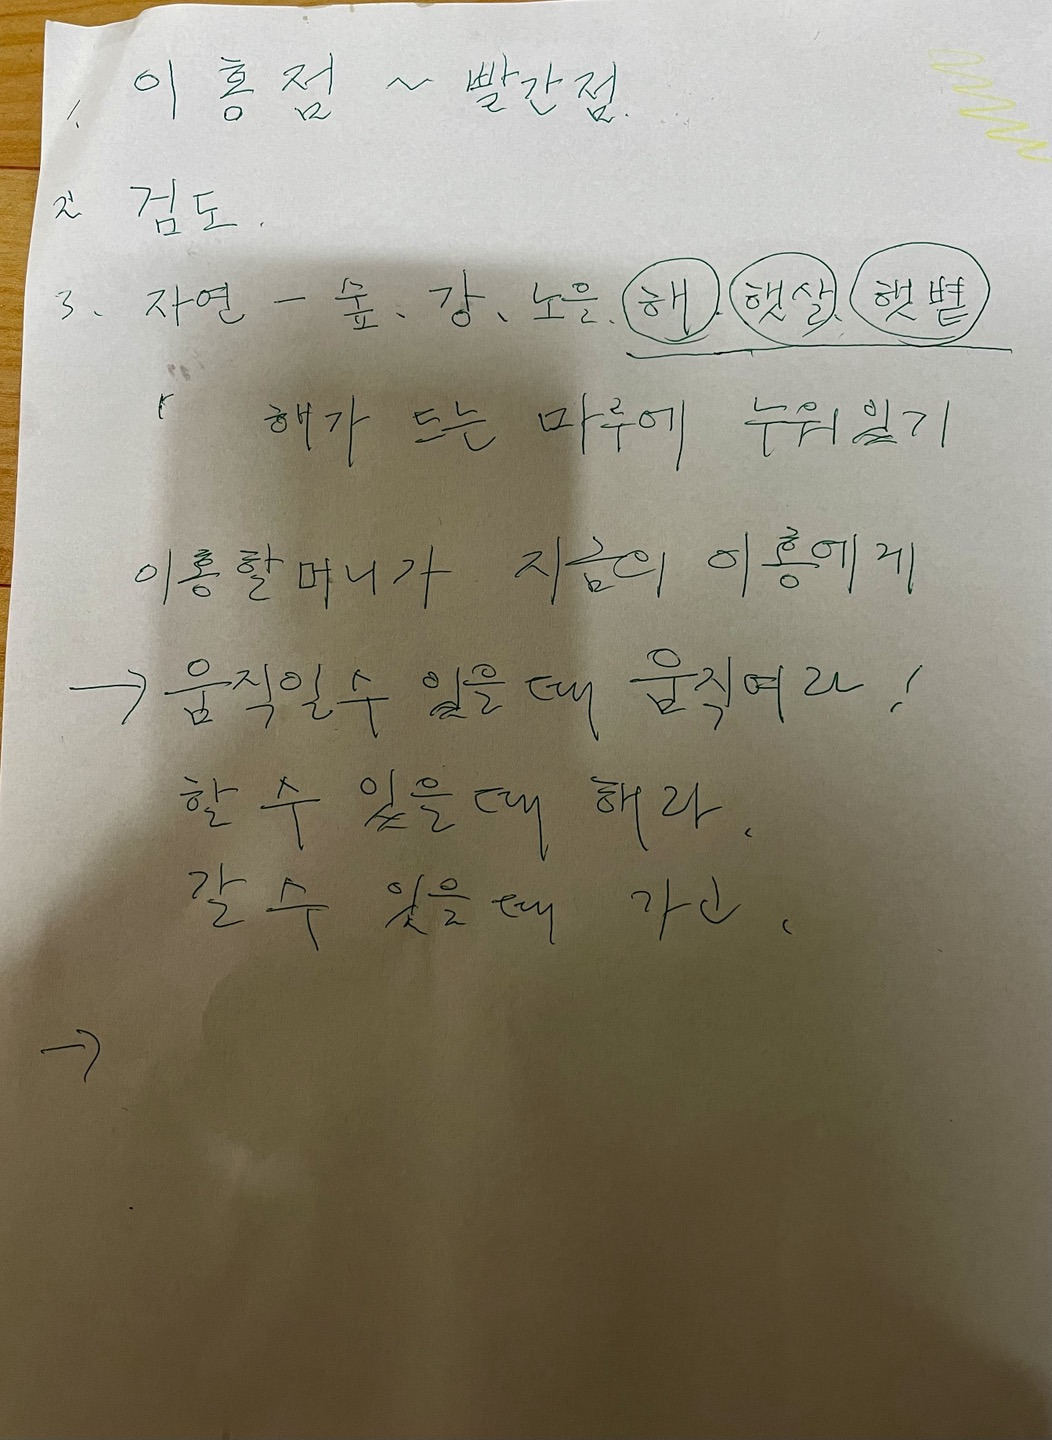 1. 이홍점 ~ 빨간점.
2. 검도.
3. 자연 - 숲、강、노을、해.햇살.햇볕
해가 드는 마루에 누워있기
이홍할머니가 지금의 이홍에게
→ 움직일수 있을때 움직여라!
할 수 있을때 해라.
갈 수 있을때 가고.
→